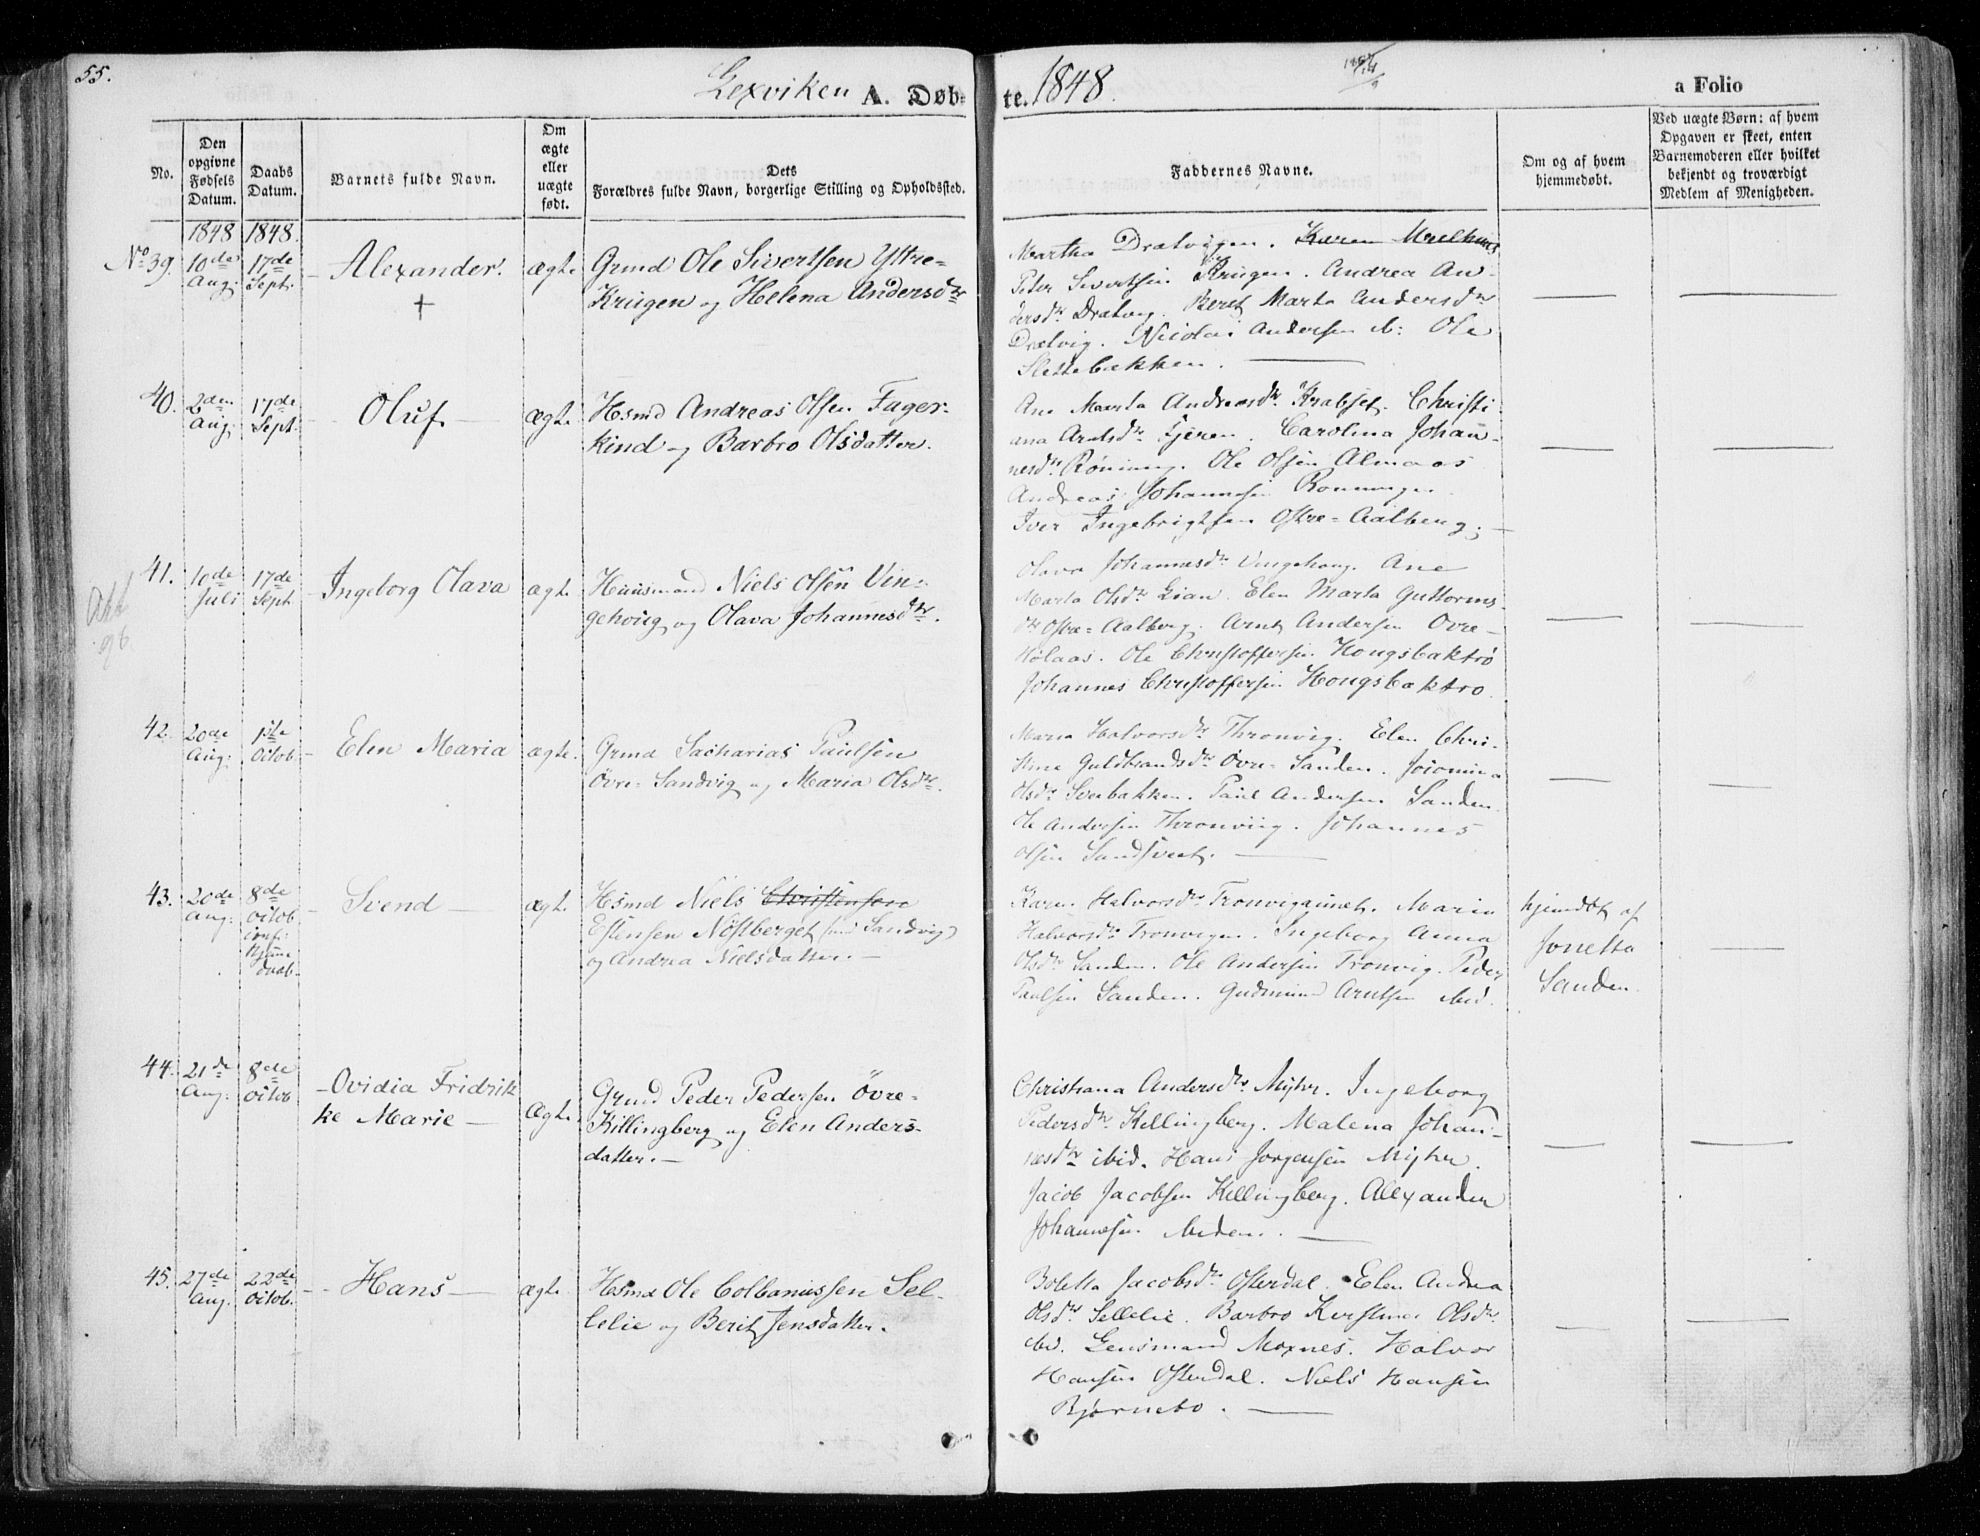 55.
Lexviken A. Døb-
te. 1848.
a Folio
No.
Den
opgivne
Fødsels
Datum.
Daabs
Datum.
Barnets fulde Navn.
Om
ægte
eller
uægte
født.
Dets
Forældres fulde Navn, borgerlige Stilling og Opholdssted.
Faddernes Navne.
Om og af hvem
hjemmedøbt.
Ved uægte Børn: af hvem
Opgaven er skeet, enten
Barnemoderen eller hvilket
bekjendt og troværdigt
Medlem af Menigheden.
1848 1848.
No 39. 10de Aug: 17de Sept. Alexander. ægte
†
Grmd Ole Sivertsen Yttre-
Krugen og Helena Andersdtr
Martha Dratvigen. Karen
Peter Sivertsen Krugen. Andrea An-
dersdtr Dratvig. Beret Marta Andersdtr
Dratvig. Nicolai Andersen ib: Ole
Slettebakken.
40. 2den Aug. 17de Sept. Oluf ægte
Hsmd Andreas Olsen Fager-
kind og Barbro Olsdatter.
Ane Marta Andreasdtr Krabset. Christi-
ana Arntsdtr Fjeren. Carolina Johan-
nesdtr Röning. Ole Olsen Almaas
Andreas Johannesen Ronningen
Iver Ingebrigtsen Østre-Aalberg.
41. 10de Juli 17de Sept Ingeborg Olava ægte
Huusmand Niels Olsen Vin-
gehoug og Olava Johannesdtr.
Olava Johannesdtr Vingehoug. Ane
Marta Olsdtr Lian. Elen Marta Guttorms-
dtr Østre-Aalberg. Arnt Andersen Ovre-
Hölaas. Ole Christoffersen Hougsbaktrö
Johannes Christoffersen Hougsbaktro.
42. 20de Aug: 1ste Octob. Elen Maria ægte.
Grmd Sacharias Paulsen
Övre-Sandvig og Maria Olsdtr.
Maria Halvorsdtr Thronvig. Elen Chri-
stine Guldbrandsdtr Övre-Sanden.
Olsdtr Sverbakken. Paul Andersen Sanden.
Ole Andersen Thronviig. Johannes
Olsen
43. 20de Aug: 8de Octob. Svend ægte
Hjemme
daab
Hsmd Niels Christensen
Estensen Nöstberget (und Sandvig)
og Andrea Nielsdatter.
Karn. Halvorsdtr Tronvigaunet. Maria
Halvorsdtr Tronvigen. Ingeborg Anna
Olsdtr Sanden. Ole Andersen Tronvig. Peder
Paulsen Sanden. Gudmund Arntsen ibid.
hjemdbt af
Jonetta
Sanden.
44. 21de Aug: 8de Octob Ovidia Fridrik
ke Marie ægte
Grmd Peder Pedersen Övre-
Killingberg og Elen Anders-
datter.
Christiana Andersdtr Myhr. Ingeborg
Pedersdtr Kellingberg. Malena Johan-
nesdtr ibid. Hans Jorgensen Myhr.
Jacob Jacobsen Kellingberg. Alexander
Johannesen ibidem.
45. 27de Aug. 22de Octob. Hans ægte.
Hsmd Ole Colbanussen Sel-
lelie og Berit Jensdatter.
Boletta Jacobsdtr Osterdal. Elen Andrea
Olsdtr Sellelie. Barbro Kirstine Olsdtr
ibd. Lensmand Moxnes. Halvor
Hansen Osterdal. Niels Hansen
Bjørnebo.